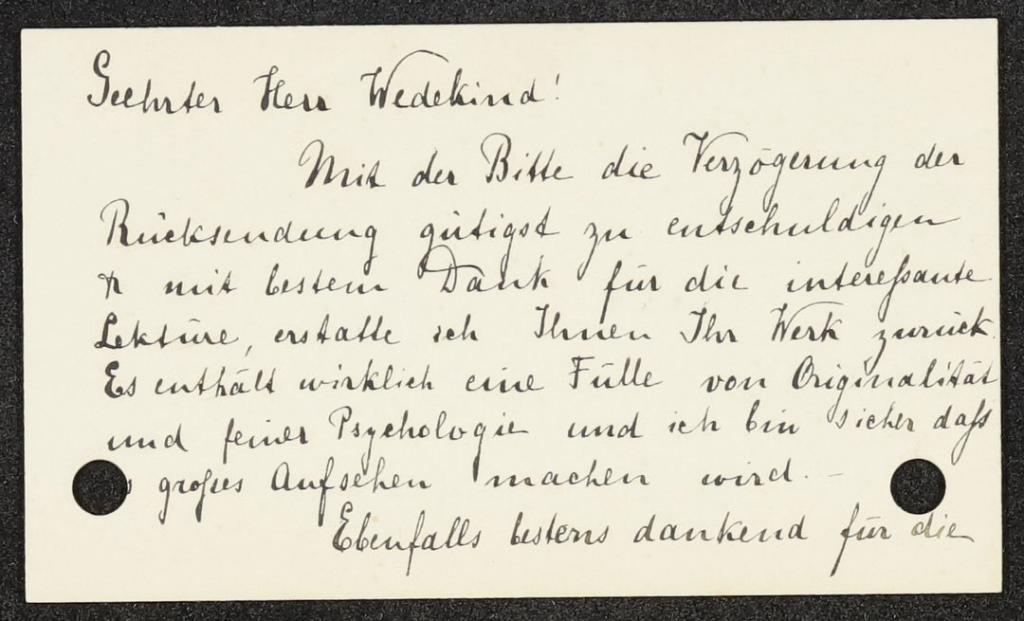 Geehrter Herr Wedekind!
Mit der Bitte die Verzögerung der
Rücksendung gütigst zu entschuldigen
& mit bestem Dank für die intereßante
Lektüre, erstatte ich Ihnen Ihr Werk zurück.
Es enthält wirklich eine Fülle von Originalität
und feiner Psychologie und ich bin sicher daß
großes Aufsehen machen wird. –
Ebenfalls bestens dankend für die